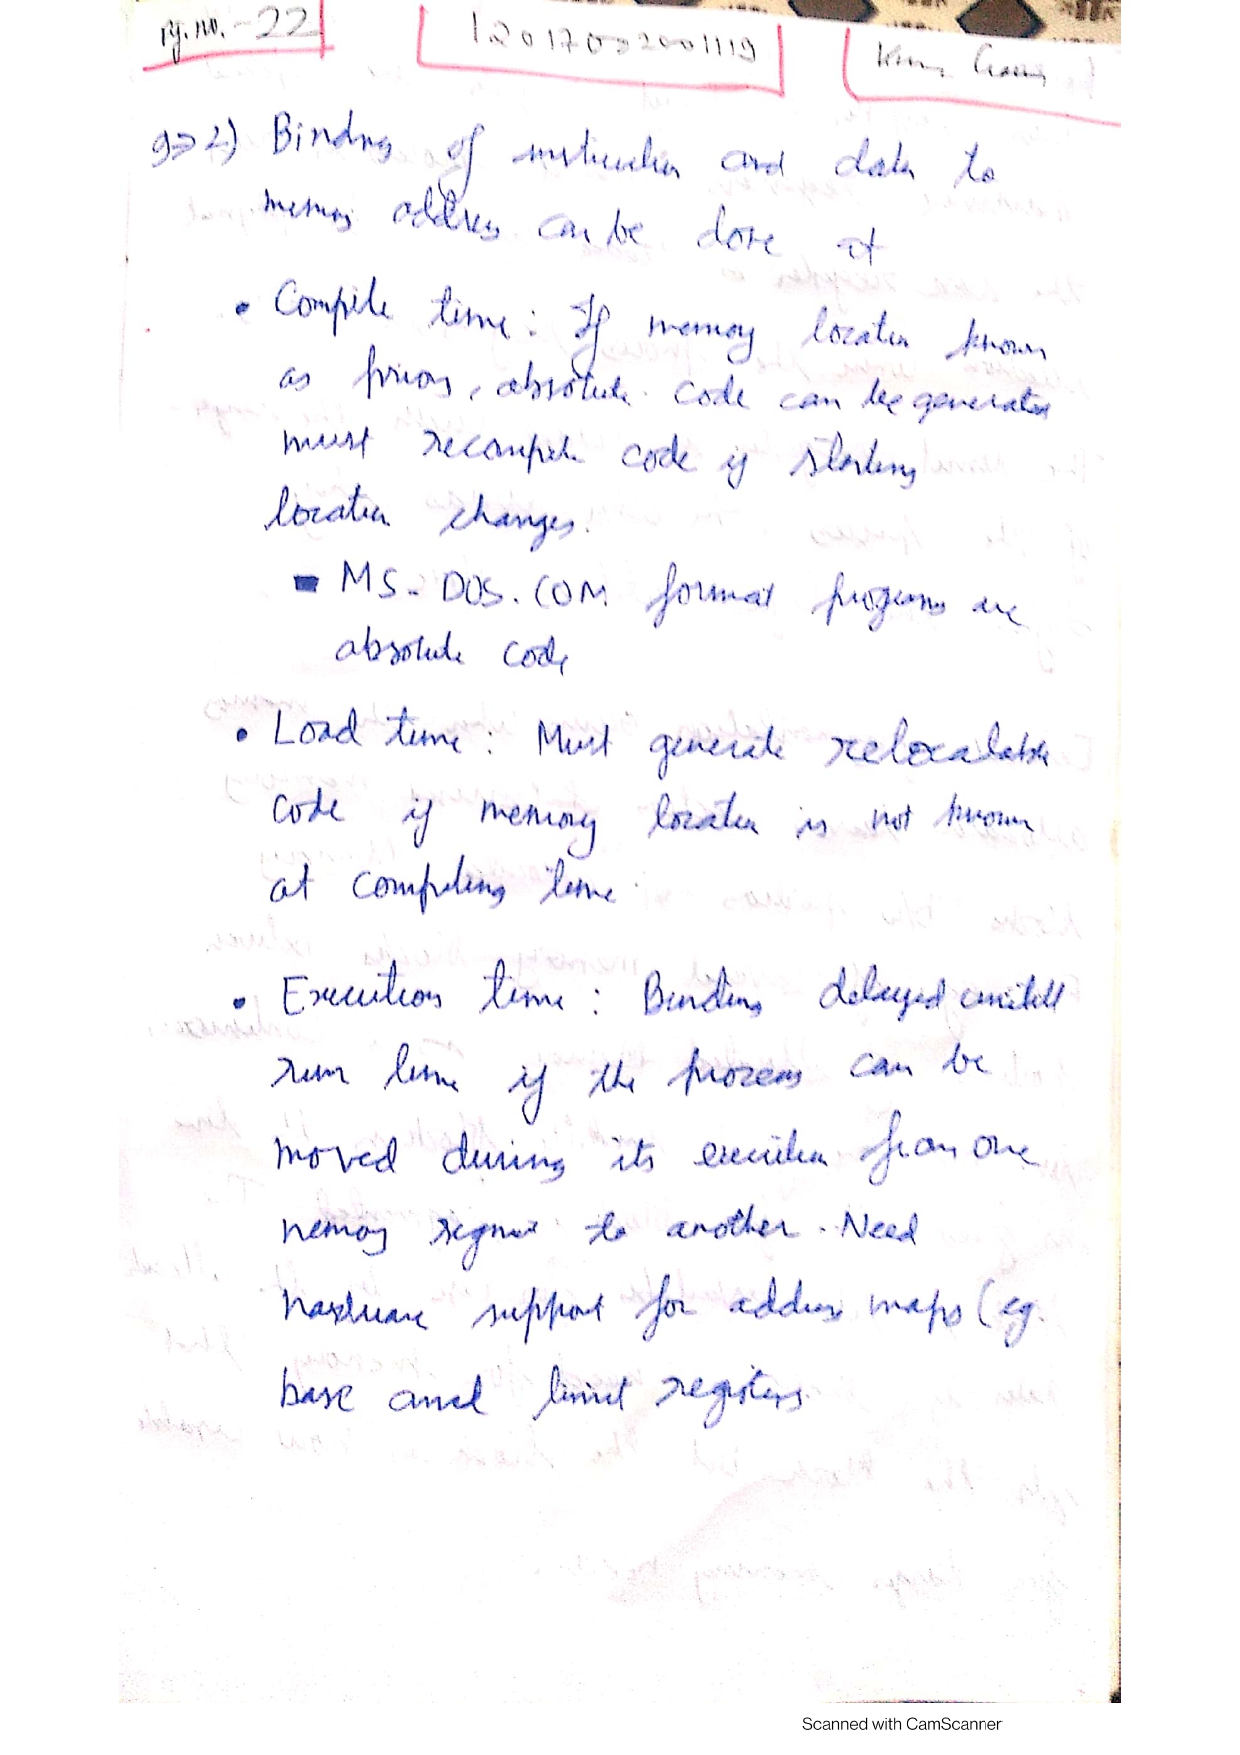 pg. no. - 22
12017002001119
9⇒ 2) Binding of instruction and data to
memory address can be done at
• Compile time: If memory location known
as priory, absolute code can be generated
must recompile code if starting
location changes.
▬ MS-DOS .COM format programs are
absolute code
• Load time: Must generate relocatable
code if memory location is not known
at compiling time.
• Execution time: Binding delayed untill
run time if the process can be
moved during its execution from one
memory segment to another. Need
hardware support for address maps (eg.
base and limit registers
Scanned with CamScanner